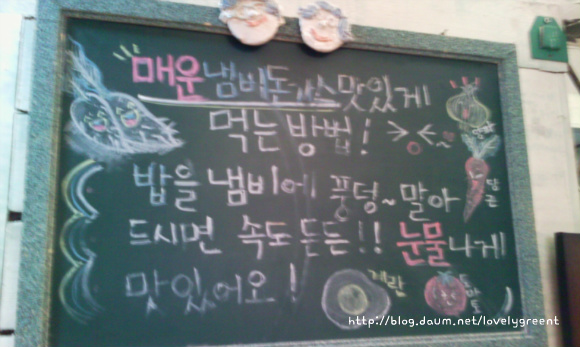 매운냄비돈까스맛있게
먹는 방법!
밥을 냄비에 풍덩~말아
드시면 속도 든든!! 눈물나게
맛있어오!
당근
계란
토마토
http://blog.daum.net/lovelygreent